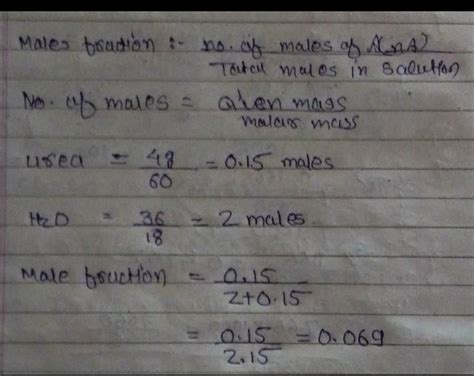 Moles fraction :- no. of moles of A(nA) / Total moles in Solution
No. of moles = Given mass / molar mass
Urea = 48 / 60 = 0.15 moles
H2O = 36 / 18 = 2 moles
Mole fraction = 0.15 / 2+0.15
= 0.15 / 2.15 = 0.069